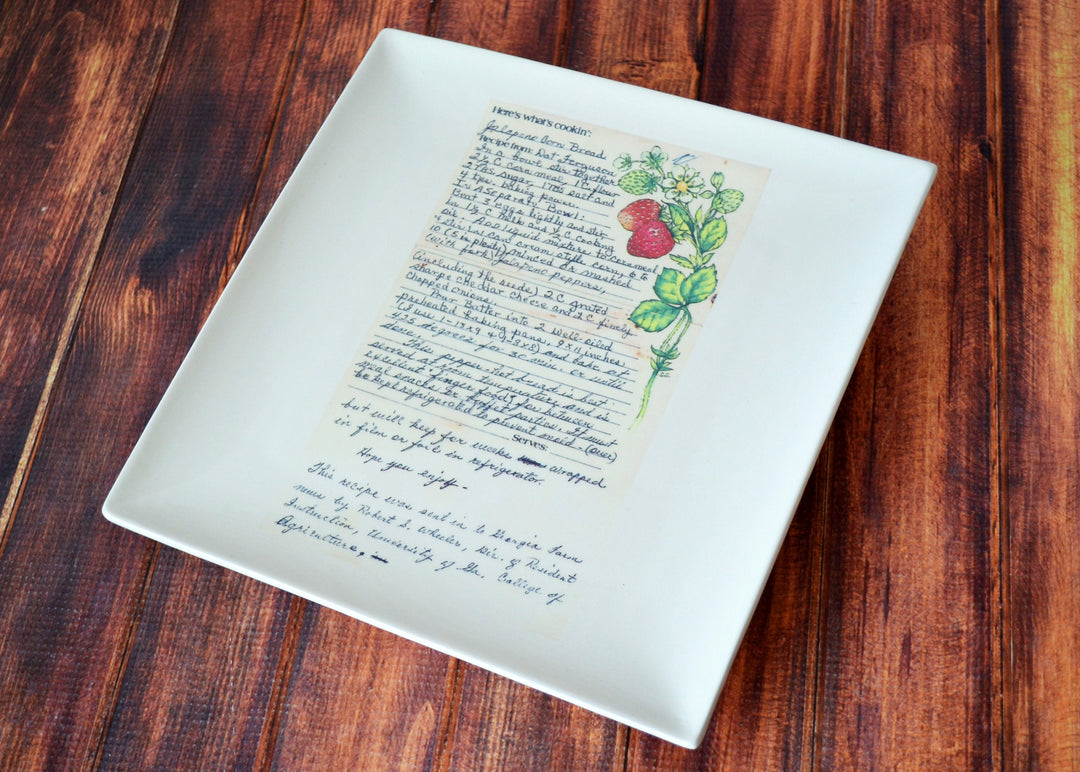 Here's what's cookin':
Jalapeno Corn Bread
Recipe from: Dot Ferguson
In a bowl stir together
2½ C corn meal, 1 C flour
2 Tbs sugar, 1 Tbs salt and
4 tps. baking powder.
In A Separate Bowl:
Beat 3 eggs lightly and stir
in 1½ C milk and ½ C cooking
oil. Add liquid mixture to cornmeal
& stir in can cream style corn, 6 to
10 (5 is plenty) minced or mashed
with fork Jalapeno peppers,
(including the seeds) 2 C grated
sharpe cheddar cheese and 2 C finely
chopped onions.
Pour Batter into 2 well-oiled
preheated baking pans, 9 x 11 inches.
(I use 1-13x9 & 1-8x8) and bake at
425 degrees for 30 min. or until
done.
This pepper-hot bread is best
served at room temperature and is
excellent finger food for between
meal snacks or parties. It must
be kept refrigerated to prevent mold. (over)
Serves:
but will keep for weeks wrapped
in film or foil in refrigerator.
Hope you enjoy-
This recipe was sent in to Georgia Farm
news by Robert S. Wheeler, Dir. of Resident
Instruction, University of Ga. College of
Agriculture,